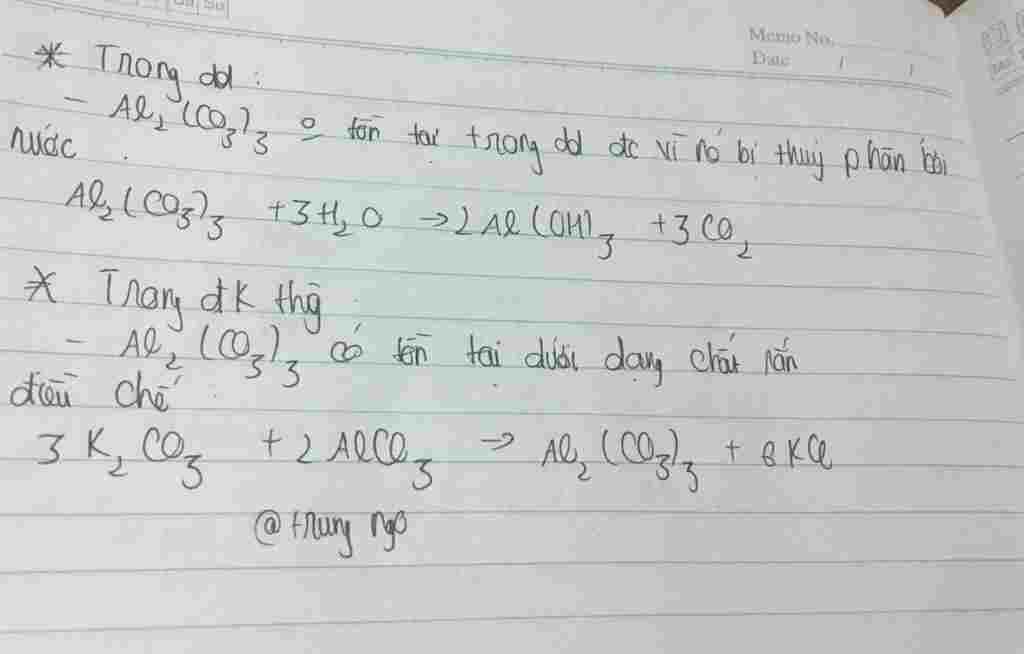 Memo No.
Date / /
* Trong dd:
- Al₂(CO₃)₃ o̲ tồn tại trong dd đc vì nó bị thuỷ phân bởi
nước.
Al₂(CO₃)₃ +3H₂O →2Al(OH)₃ +3CO₂
* Trong đk thg
- Al₂(CO₃)₃ có tồn tại dưới dạng chất rắn
điều chế:
3K₂CO₃ +2AlCl₃ → Al₂(CO₃)₃ + 6KCl
@trung ngo